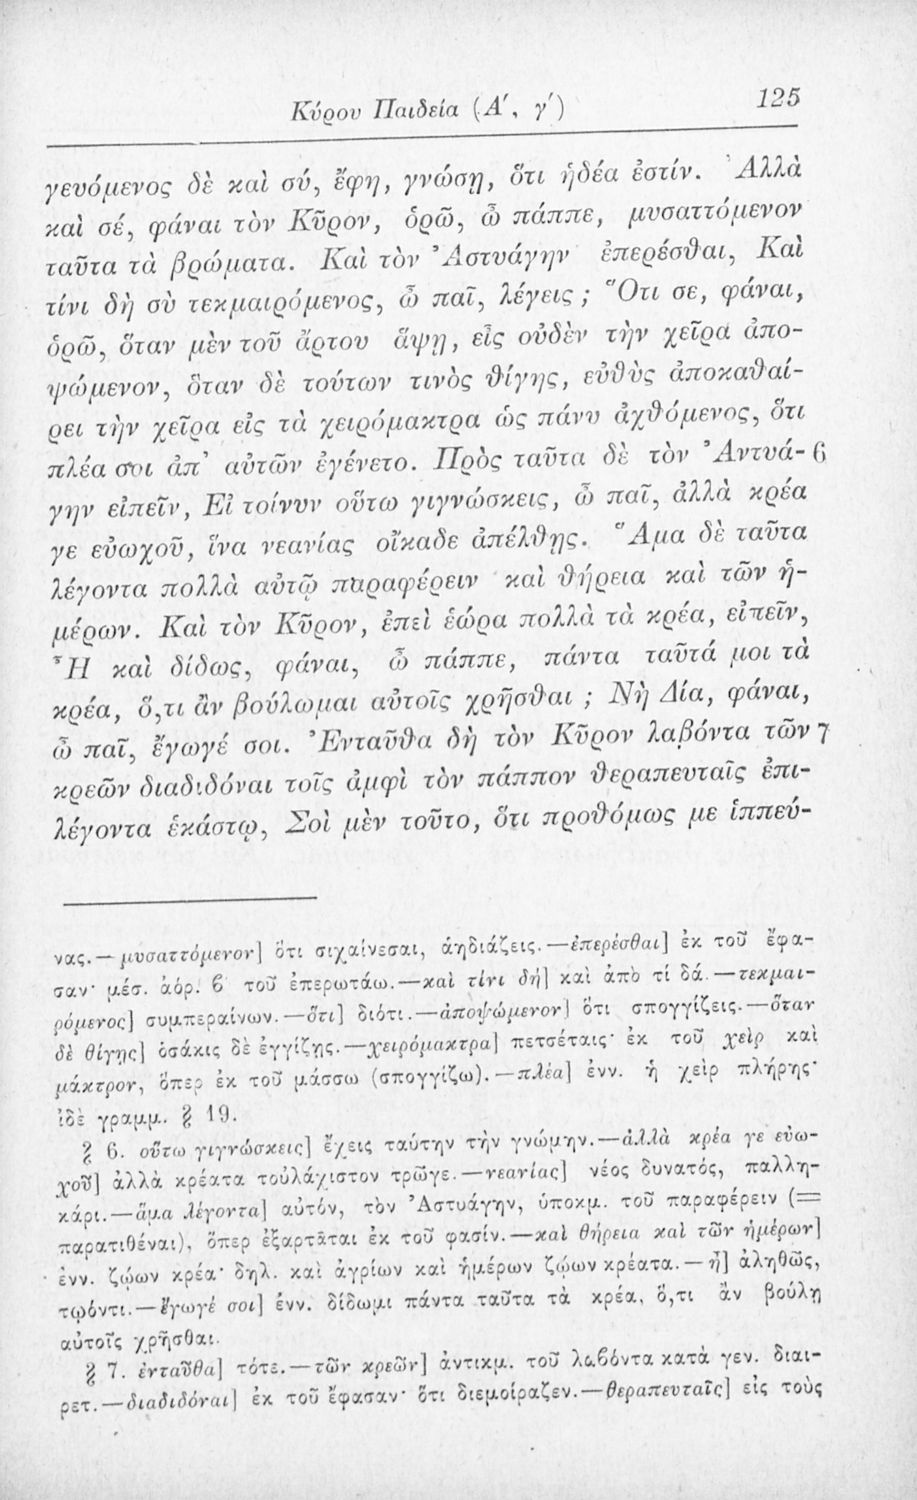 Κύρου Παιδεία (Α′, γ′)
125
γευόμενος δὲ καὶ σύ, ἔφη, γνώσῃ, ὅτι ἡδέα ἐστίν. Ἀλλὰ
καὶ σέ, φάναι τὸν Κῦρον, ὁρῶ, ὦ πάππε, μυσαττόμενον
ταῦτα τὰ βρώματα. Καὶ τὸν Ἀστυάγην ἐπερέσθαι, Καὶ
τίνι δὴ σὺ τεκμαιρόμενος, ὦ παῖ, λέγεις ; Ὅτι σε, φάναι,
ὁρῶ, ὅταν μὲν τοῦ ἄρτου ἅψῃ, εἰς οὐδὲν τὴν χεῖρα ἀπο-
ψώμενον, ὅταν δὲ τούτων τινὸς θίγῃς, εὐθὺς ἀποκαθαί-
ρει τὴν χεῖρα εἰς τὰ χειρόμακτρα ὡς πάνυ ἀχθόμενος, ὅτι
πλέα σοι ἀπ’ αὐτῶν ἐγένετο. Πρὸς ταῦτα δὲ τὸν Ἀντυά- 6
γην εἰπεῖν, Εἰ τοίνυν οὕτω γιγνώσκεις, ὦ παῖ, ἀλλὰ κρέα
γε εὐωχοῦ, ἵνα νεανίας οἴκαδε ἀπέλθῃς. Ἅμα δὲ ταῦτα
λέγοντα πολλὰ αὐτῷ παραφέρειν καὶ θήρεια καὶ τῶν ἡ-
μέρων. Καὶ τὸν Κῦρον, ἐπεὶ ἑώρα πολλὰ τὰ κρέα, εἰπεῖν,
Ἦ καὶ δίδως, φάναι, ὦ πάππε, πάντα ταῦτά μοι τὰ
κρέα, ὅ,τι ἂν βούλωμαι αὐτοῖς χρῆσθαι ; Νὴ Δία, φάναι,
ὦ παῖ, ἔγωγέ σοι. Ἐνταῦθα δὴ τὸν Κῦρον λαβόντα τῶν 7
κρεῶν διαδιδόναι τοῖς ἀμφὶ τὸν πάππον θεραπευταῖς ἐπι-
λέγοντα ἑκάστῳ, Σοὶ μὲν τοῦτο, ὅτι προθόμως με ἱππεύ-
νας.—μυσαττόμενον] ὅτι σιχαίνεσαι, ἀηδιάζεις.—ἐπερέσθαι] ἐκ τοῦ ἔφα-
σαν· μέσ. ἀόρ. β΄ τοῦ ἐπερωτάω.—καὶ τίνι δή] καὶ ἀπὸ τί δά.—τεκμαι-
ρόμενος] συμπεραίνων.—ὅτι] διότι.—ἀποψώμενον] ὅτι σπογγίζεις.—ὅταν
δὲ θίγῃς] ὁσάκις δὲ ἐγγίζῃς.—χειρόμακτρα] πετσέταις· ἐκ τοῦ χεὶρ καὶ
μάκτρον, ὅπερ ἐκ τοῦ μάσσω (σπογγίζω).—πλέα] ἐνν. ἡ χεὶρ πλήρης·
ἰδὲ γραμμ. § 19.
§ 6. οὕτω γιγνώσκεις] ἔχεις ταύτην τὴν γνώμην.—ἀλλὰ κρέα γε εὐω-
χοῦ] ἀλλὰ κρέατα τοὐλάχιστον τρῶγε.—νεανίας] νέος δυνατός, παλλη-
κάρι.—ἅμα λέγοντα] αὐτόν, τὸν Ἀστυάγην, ὑποκμ. τοῦ παραφέρειν (=
παρατιθέναι), ὅπερ ἐξαρτᾶται ἐκ τοῦ φασίν.—καὶ θήρεια καὶ τῶν ἡμέρων]
ἐνν. ζῴων κρέα· δηλ. καὶ ἀγρίων καὶ ἡμέρων ζῴων κρέατα.—ἦ] ἀληθῶς,
τῳόντι.—ἔγωγέ σοι] ἐνν. δίδωμι πάντα ταῦτα τὰ κρέα, ὅ,τι ἂν βούλῃ
αὐτοῖς χρῆσθαι.
§ 7. ἐνταῦθα] τότε.—τῶν κρεῶν] ἀντικμ. τοῦ λαβόντα κατὰ γεν. διαι-
ρετ.—διαδιδόναι] ἐκ τοῦ ἔφασαν· ὅτι διεμοίραζεν.—θεραπευταῖς] εἰς τοὺς